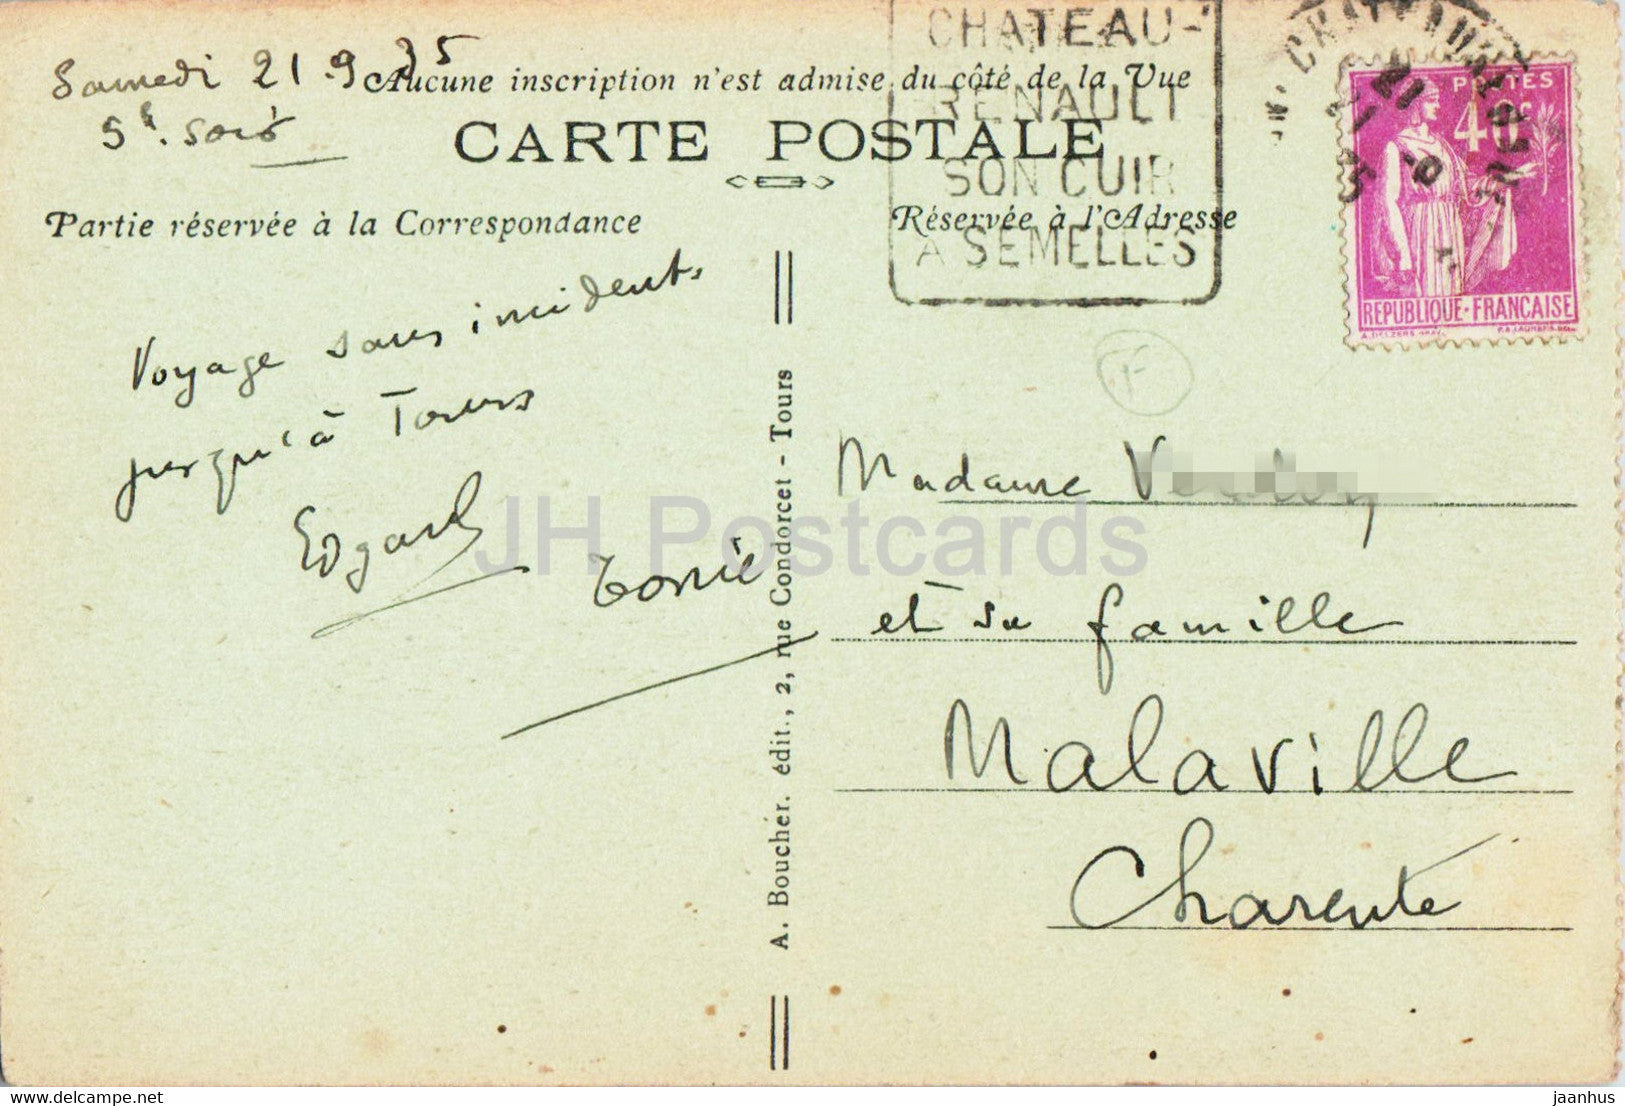 Samedi 21.9.35
5h. soir
CHATEAU-
RENAULT
SON CUIR
A SEMELLES
POSTES
40c
REPUBLIQUE-FRANÇAISE
Aucune inscription n'est admise du côté de la Vue
CARTE POSTALE
Partie réservée à la Correspondance
Réservée à l'Adresse
Voyage sans incidents
jusqu'à Tours
Edgard
A. Boucher. édit., 2, rue Condorcet - Tours
F
Madame
et sa famille
Malaville
Charente
JH Postcards
www.delcampe.net
jaanhus